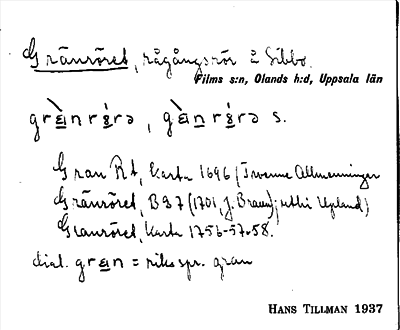 Gränröret, rågångsrör å Sibbo.
Films s:n, Olands h:d, Uppsala län
grὰ̈nrö́rə, gὰ̈nrö́rə s.
Gran Rt, karta 1696 (Tvenne Allmenninger
Gränröret, B 27 (1701, J. Braun; utki Upland)
Granröret, karta 1756-57-58.
dial. grän = riksspr. gran
HANS TILLMAN 1937